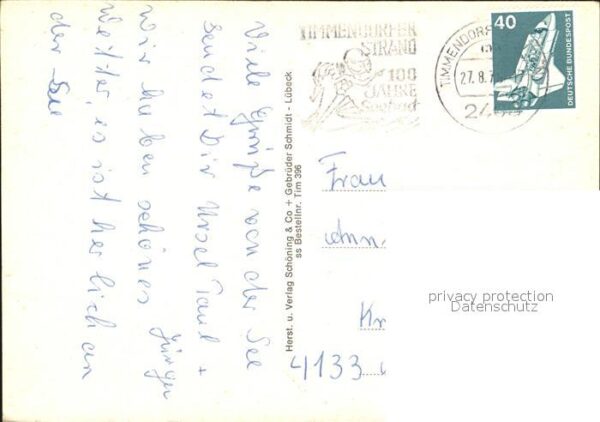 Viele Grüße von der See
sendet Dir Ursel Paul +
Jürgen
Wir haben schönes
Wetter, es ist herlich an
der See
Herst. u. Verlag Schöning & Co + Gebrüder Schmidt - Lübeck
ss Bestellnr. Tim 396
TIMMENDORFER
STRAND
100
JAHRE
Seebad
TIMMENDORF
27.8.7
24
40
DEUTSCHE BUNDESPOST
Frau
Ann
Kr
4133
privacy protection
Datenschutz